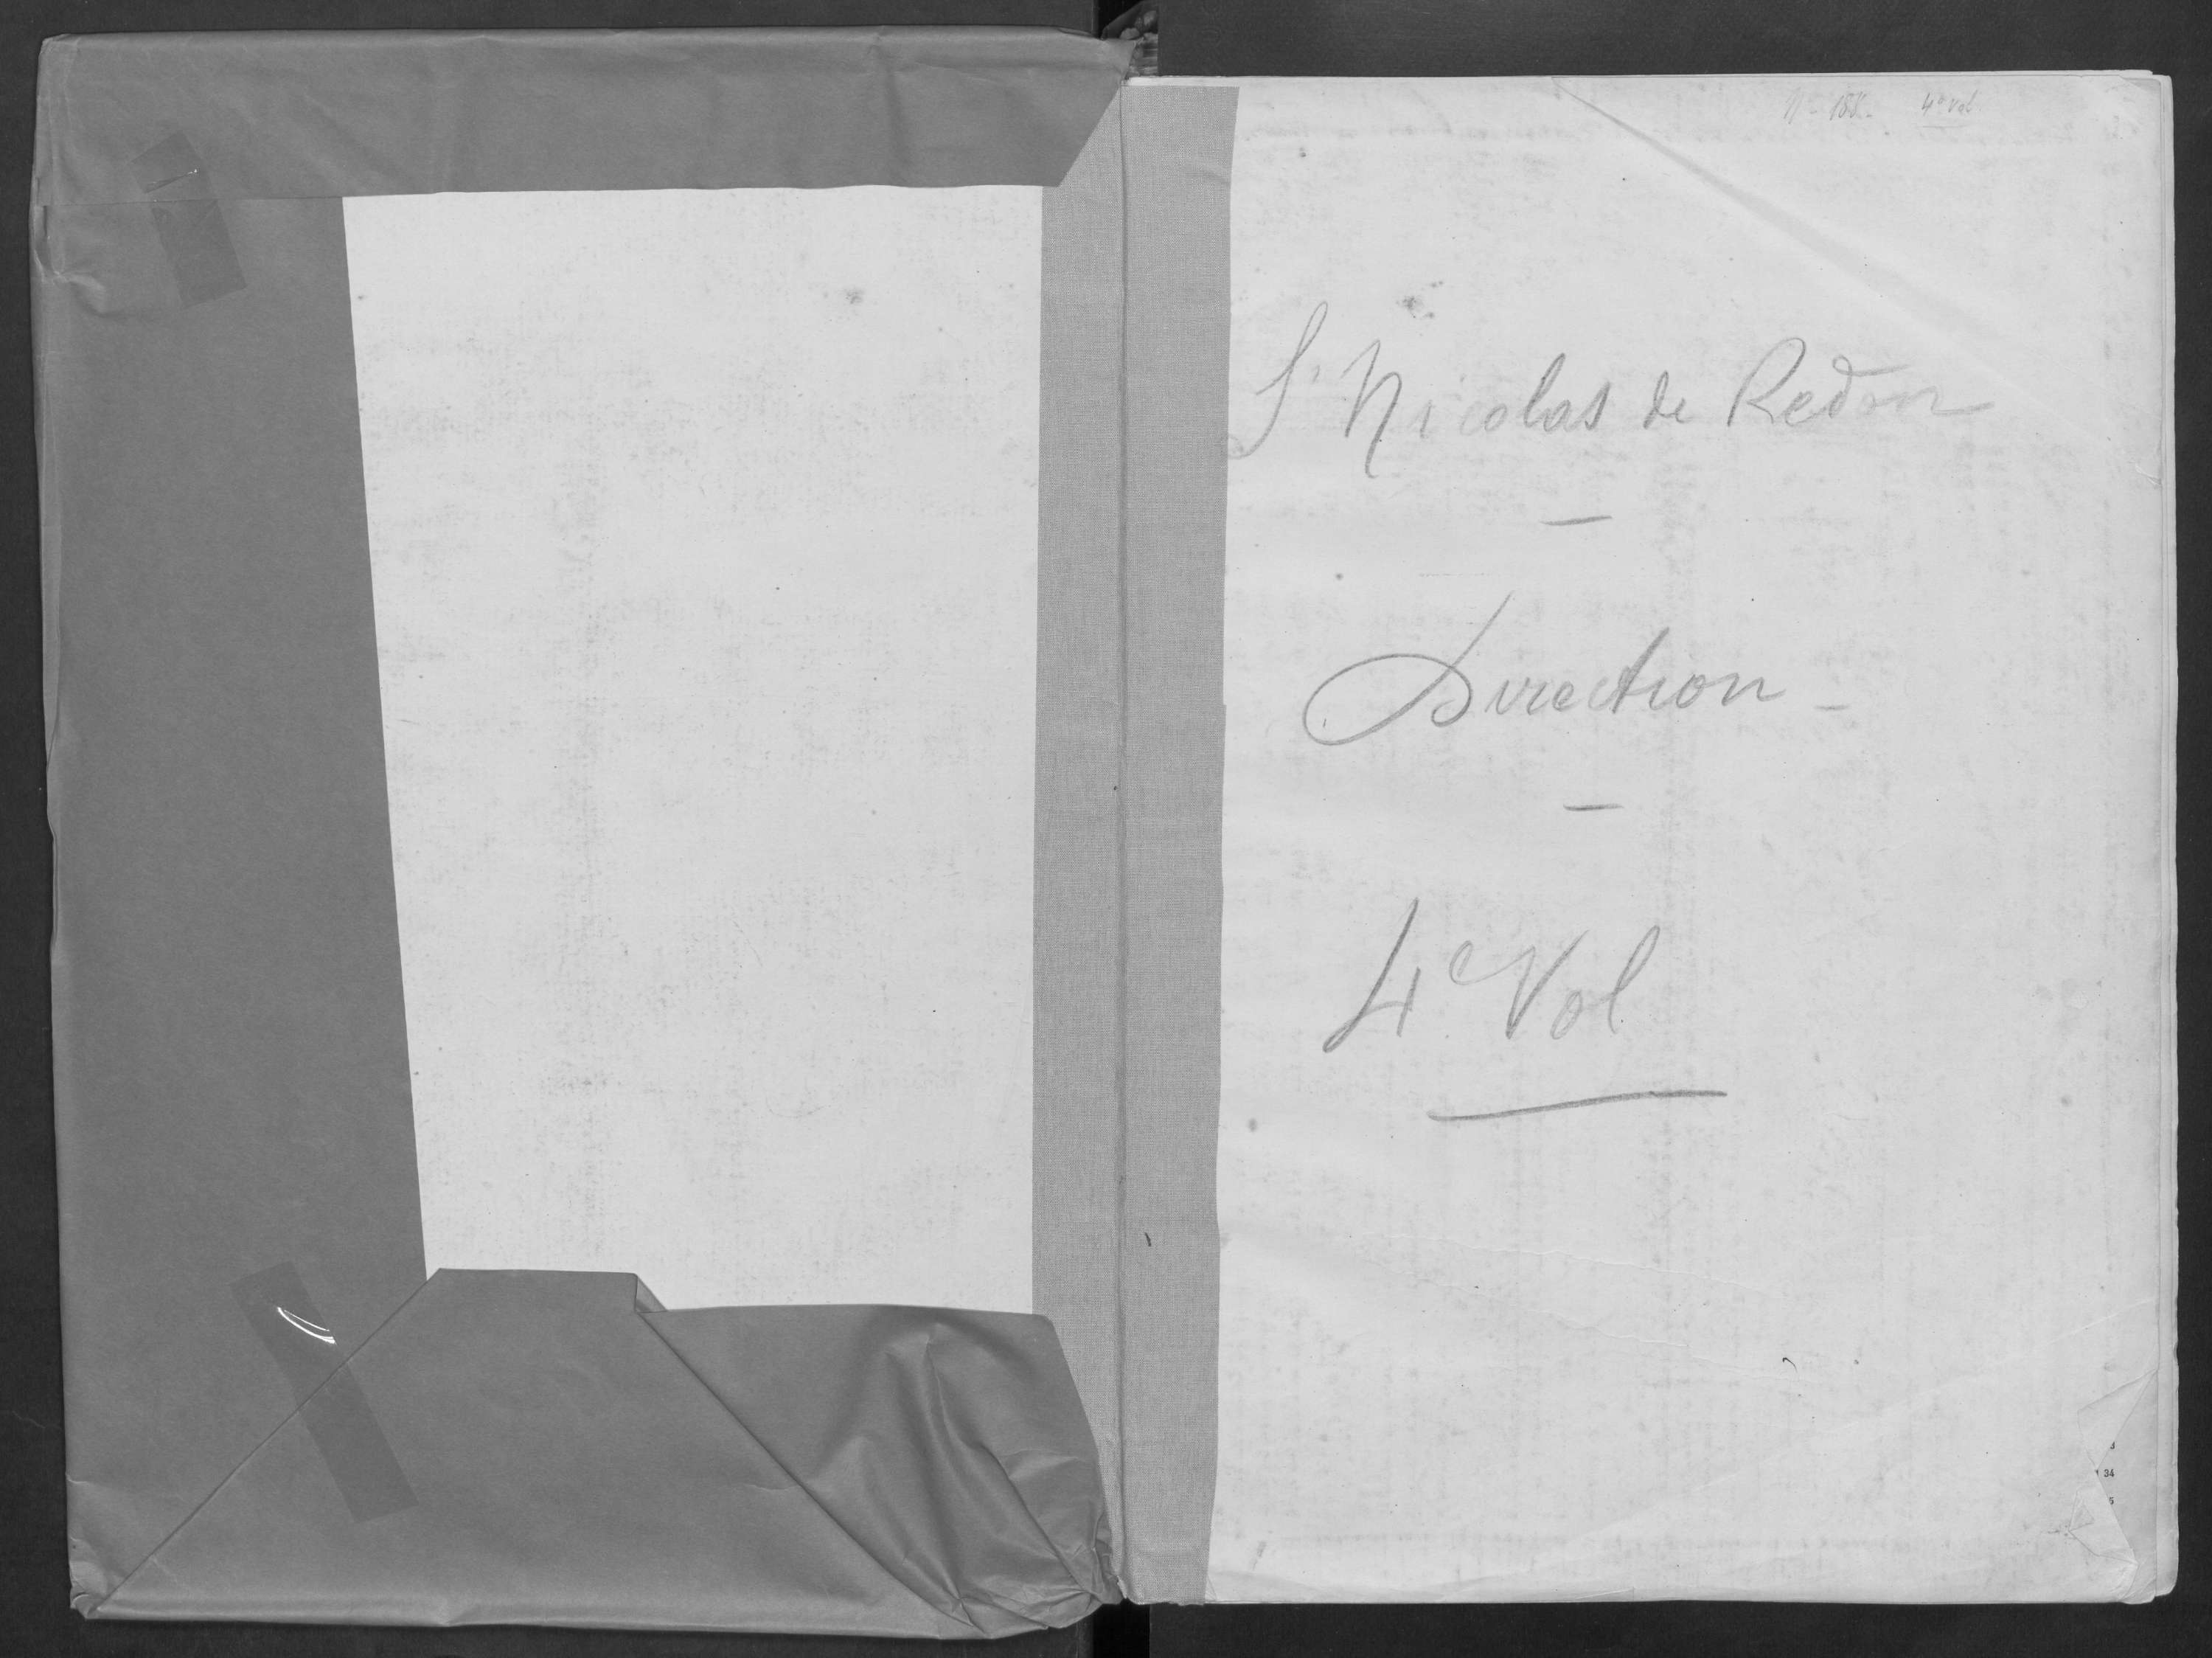 4e Vol
St Nicolas de Redon
Direction
4e Vol
34